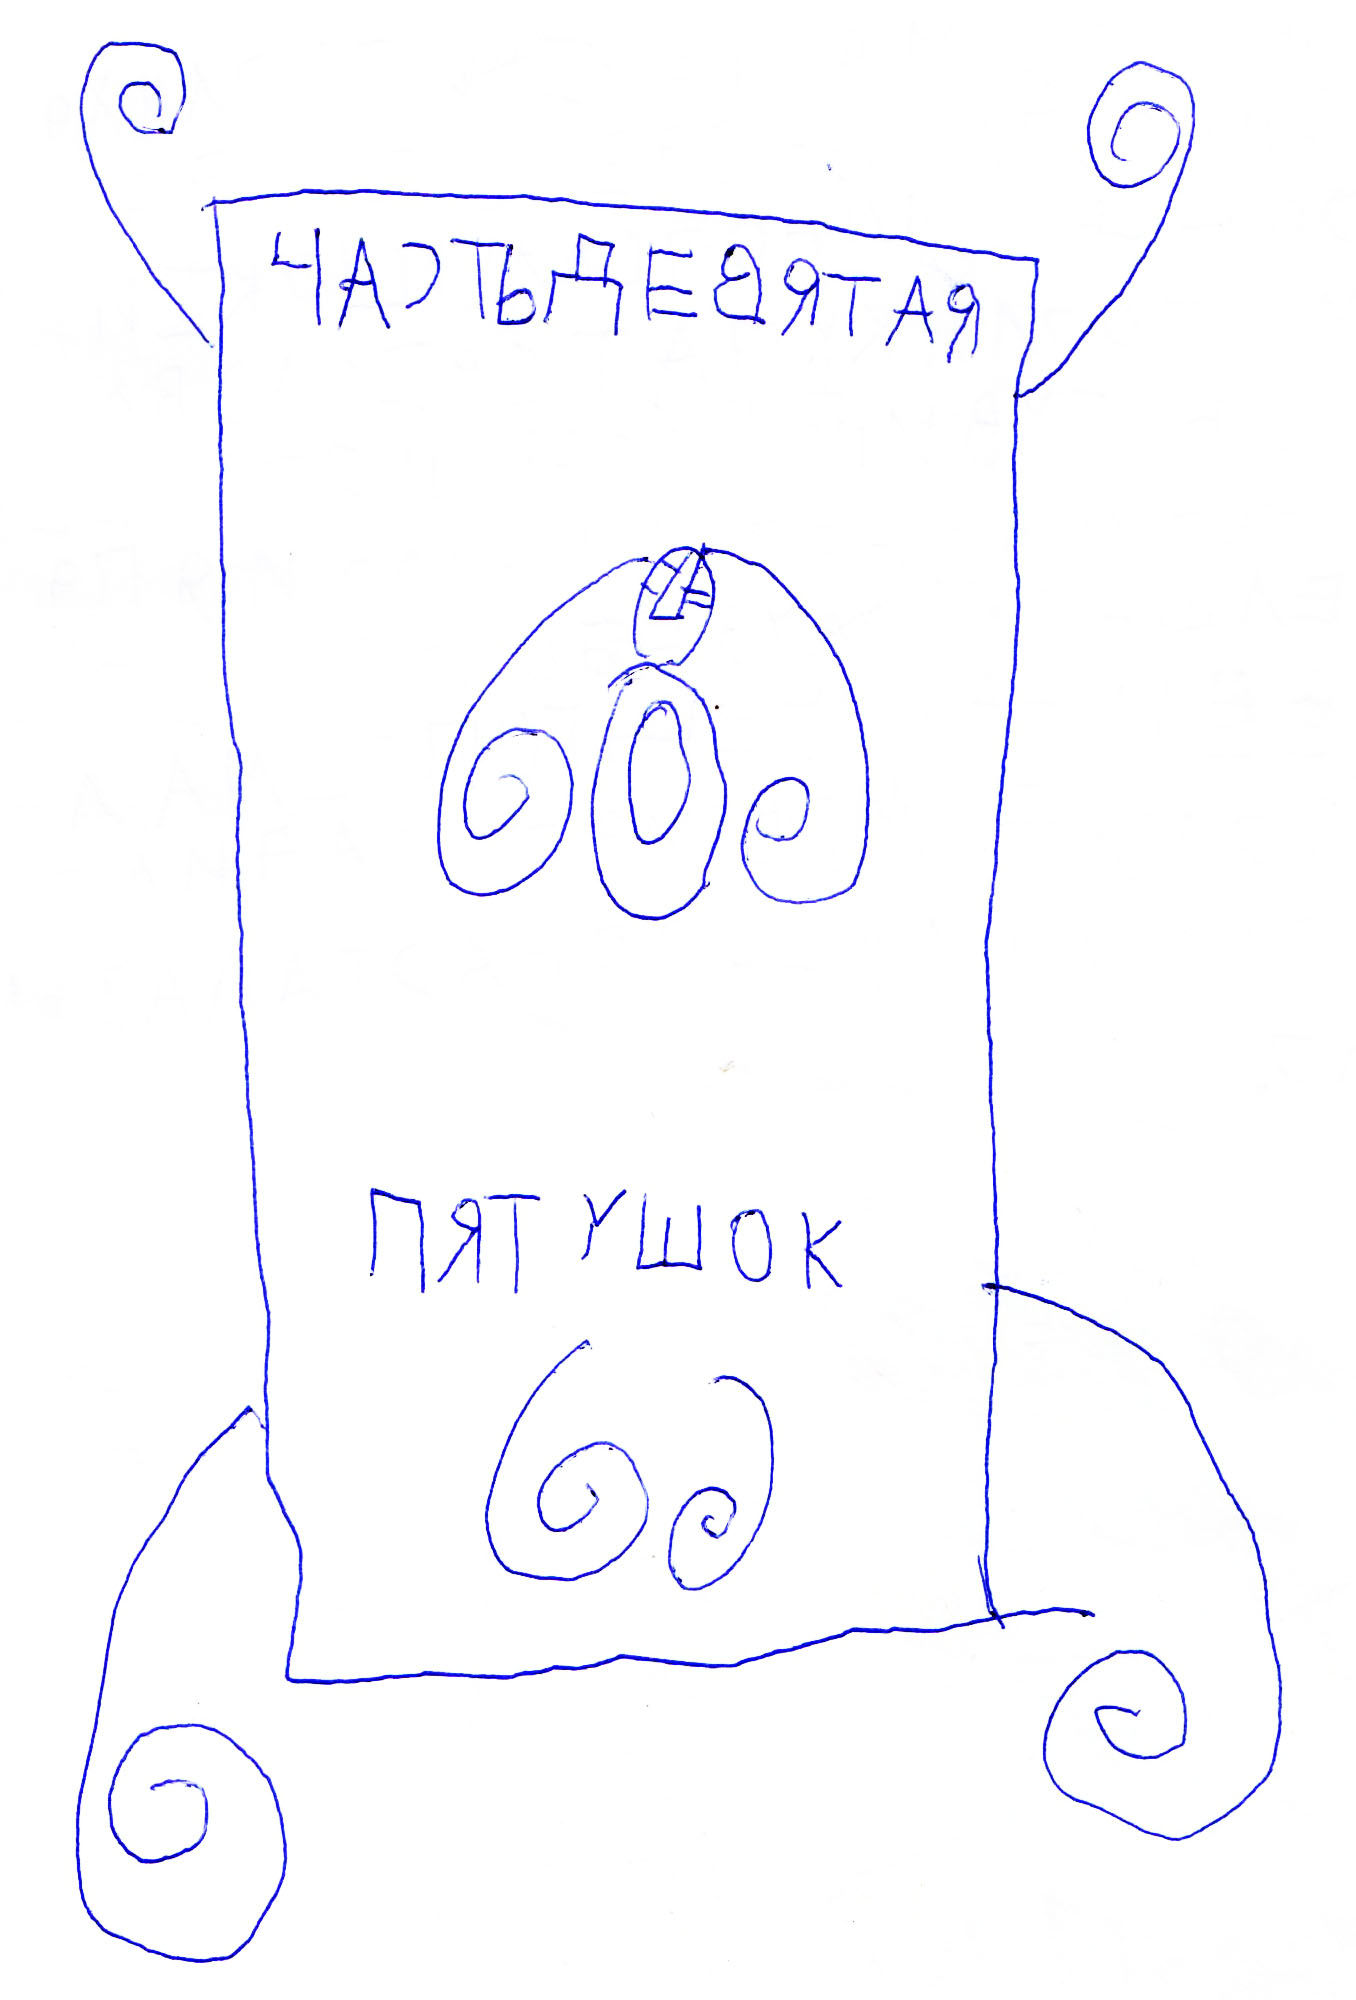 ЧАСТЬ ДЕВЯТАЯ
ПЯТУШОК